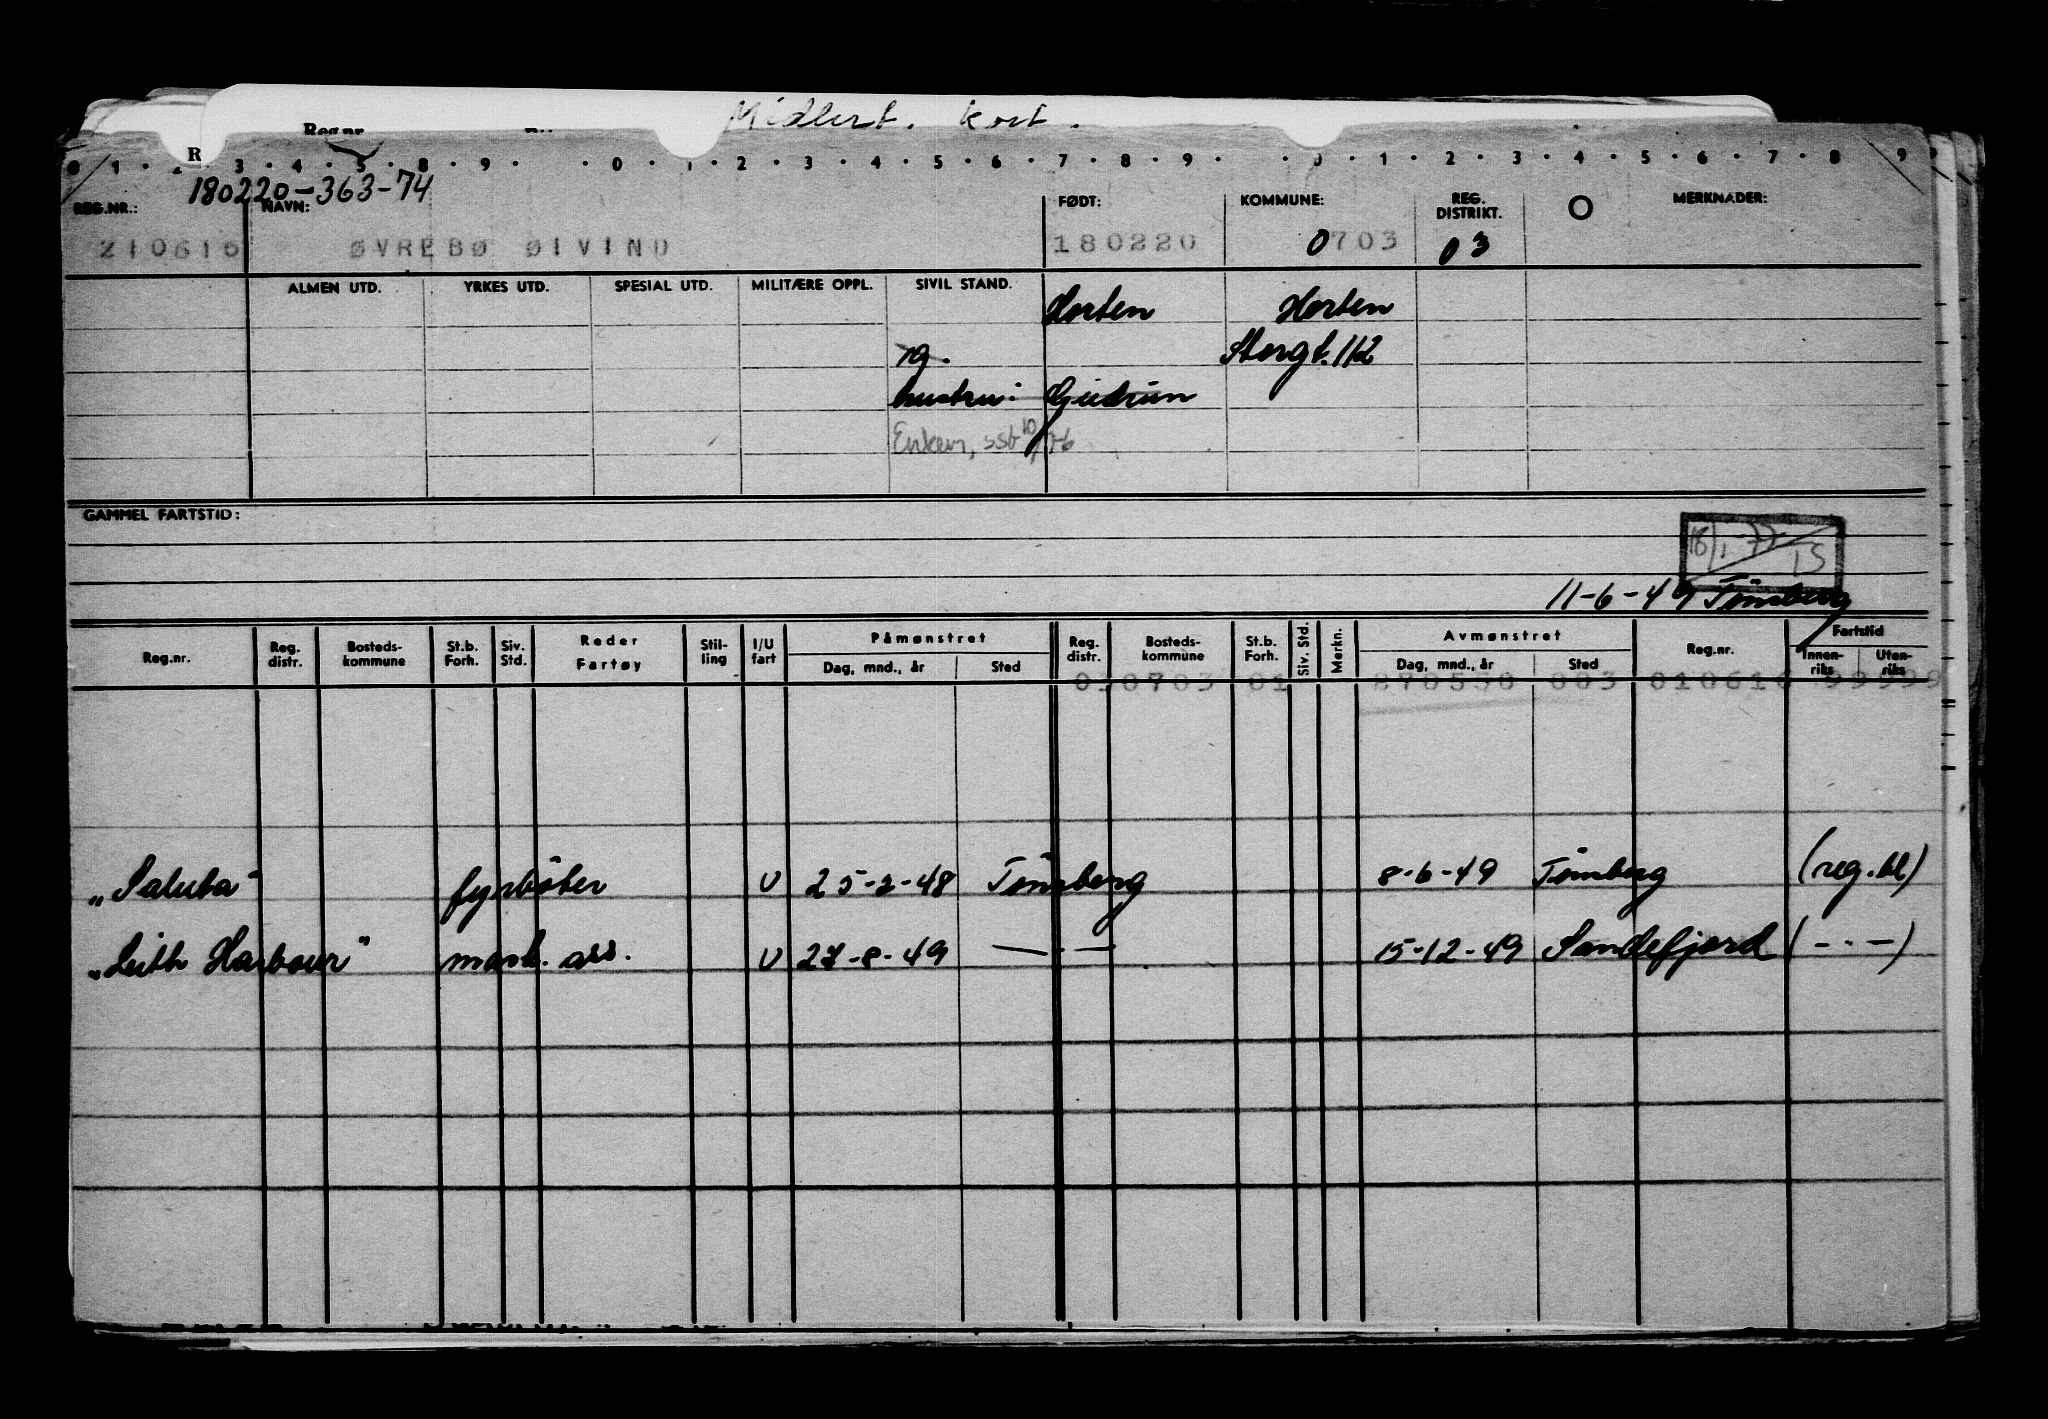 Midlert. kort.
Reg.nr.
R
0 1 2 3 4 5 8 9 0 1 2 3 4 5 6 7 8 9 0 1 2 3 4 5 6 7 8 9
180220-363-74
REG.NR.: NAVN: FØDT: KOMMUNE: REG. DISTRIKT. O MERKNADER:
210616 ØVREBØ ØIVIND 180220 0703 03
ALMEN UTD. YRKES UTD. SPESIAL UTD. MILITÆRE OPPL. SIVIL STAND. Horten Horten
Storgt. 112
hustru: Gudrun
Enken,
GAMMEL FARTSTID:
18/1-77 TS
11-6-49 Tönsberg
Reg.nr. Reg. distr. Bosteds-kommune St.b. Forh. Siv. Std. Reder Fartøy Stil-ling I/U fart Påmønstret Dag, mnd., år Sted Reg. distr. Bosteds-kommune St.b. Forh. Siv. Std. Merkn. Avmønstret Dag, mnd., år Sted Reg.nr. Fartstid Innen-riks Uten-riks
030703 01 270550 003 010616 99999
„Saluta" fyrböter U 25-2-48 Tönsberg 8-6-49 Tönsberg (reg.bl)
„Leith Harbour" mask. ass. U 27-8-49 — · — 15-12-49 Sandefjord (— · —)